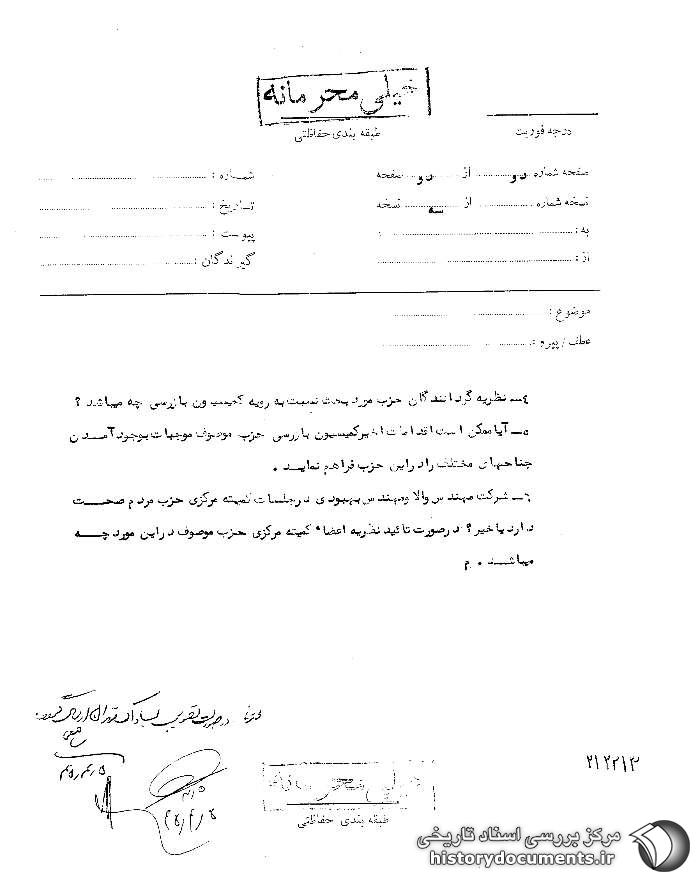 خیلی محرمانه
طبقه بندی حفاظتی
درجه فوریت
صفحه شماره دو از دو صفحه
نسخه شماره از سه نسخه
به :
از :
شماره :
تاریخ :
پیوست :
گیرندگان :
موضوع :
عطف / پیرو :
٤ــ نظریه گردانندگان حزب مورد بحث نسبت به رویه کمیسیون بازرسی چه میباشد ؟
٥ــ آیا ممکن است اقدامات اخیر کمیسیون بازرسی حزب موصوف موجبات بوجود آمدن
جناحهای مختلف را در این حزب فراهم نماید .
٦ــ شرکت مهندس والا و مهندس بهبودی در جلسات کمیته مرکزی حزب مردم صحت
دارد یا خیر ؟ در صورت تائید نظریه اعضاء کمیته مرکزی حزب موصوف در این مورد چه
میباشد . م
در صورت تصویب بساواک تهران ارسال گردد .
۲۱۲۲۱۲
خیلی محرمانه
طبقه بندی حفاظتی
مرکز بررسی اسناد تاریخی
historydocuments.ir